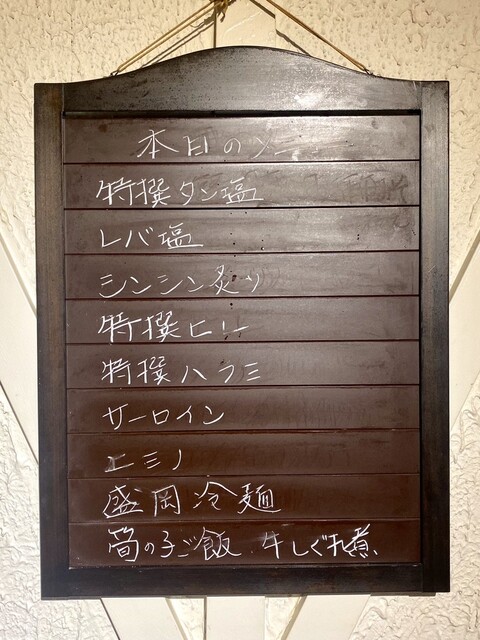 本日の
特撰タン塩
レバ塩
シンシン炙り
特撰ヒレ
特撰ハラミ
サーロイン
上ミノ
盛岡冷麺
筍の子ご飯 牛しぐれ煮